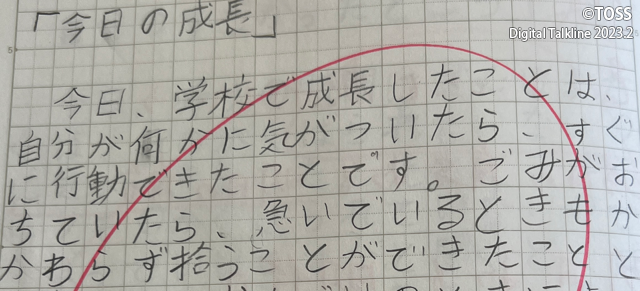 ©TOSS
Digital Talkline 2023.2
「今日の成長」
今日、学校で成長したことは、
自分が何かに気がついたら、すぐ
に行動できたことです。ごみがお
ちていたら、急いでいるときもか
かわらず拾うことができたことと